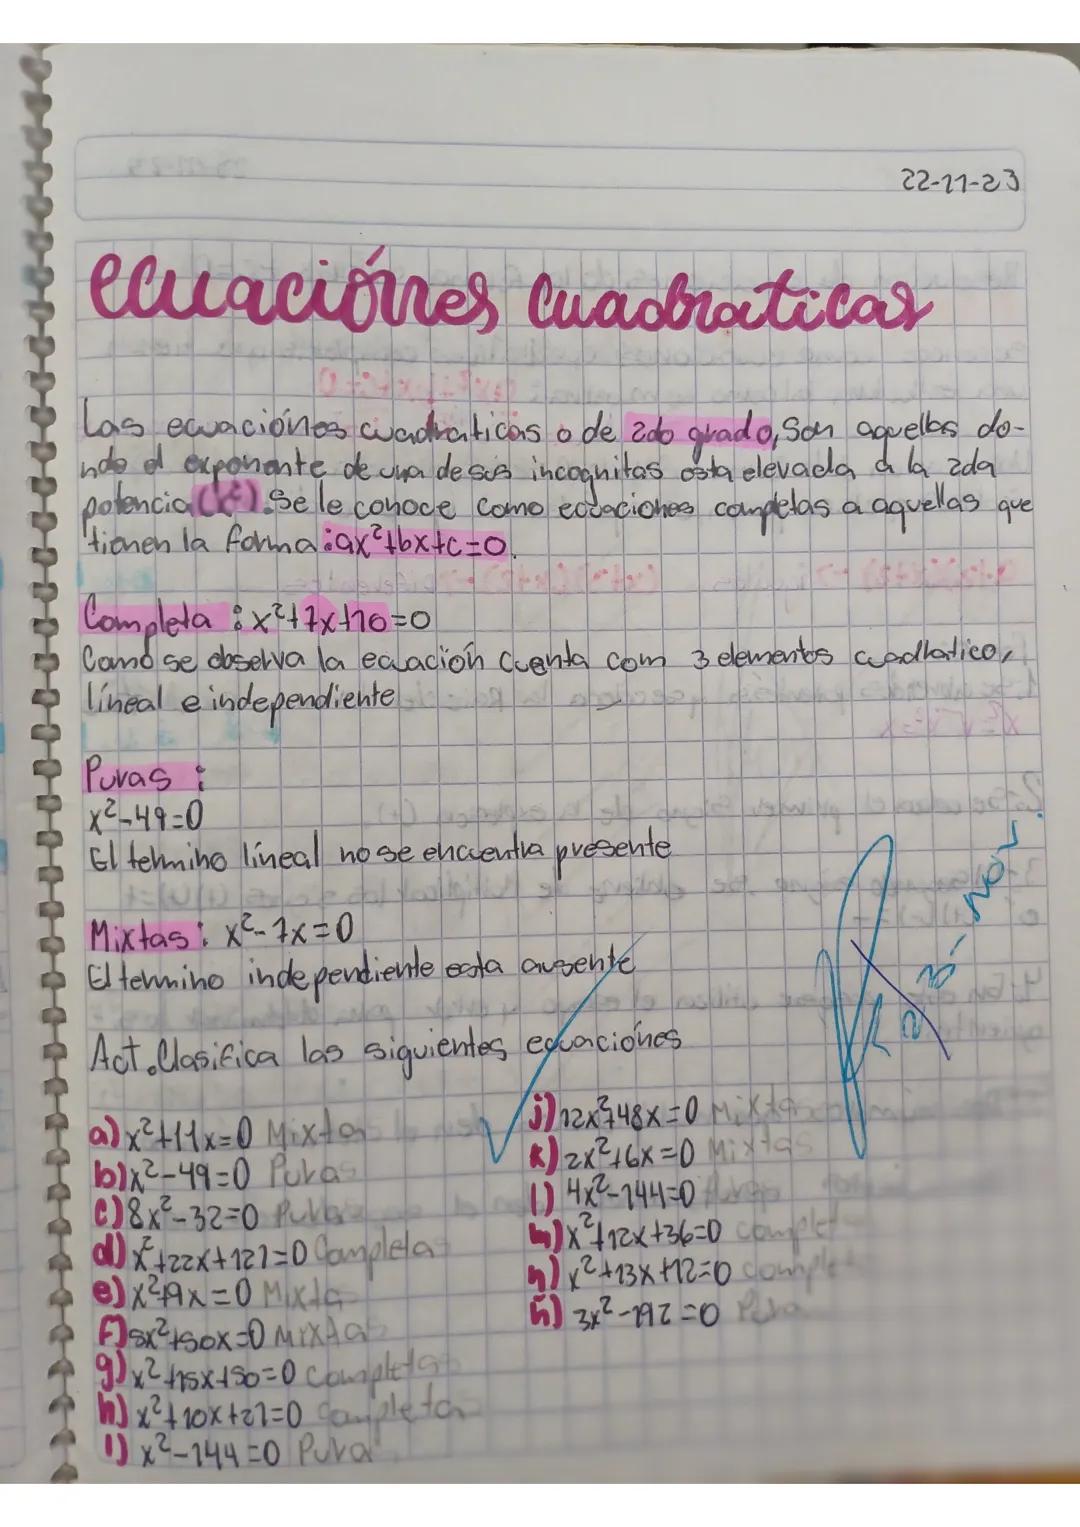 22-11-23
ecuaciónes cuadraticas
Las ecuaciónes cuadraticas o de 2do grado, son aquellas do-
nde el exponente de una de sus incognitas esta elevada a la 2da
potencia (x²). Se le conoce como ecuaciones completas a aquellas que
tienen la forma: ax²+bx+c=0.
Completa: x²+7x+10=0
Como se observa la ecuación cuenta com 3 elementos cuadratico,
líneal e independiente
Puras:
x²-49=0
El termino líneal no se encuentra presente
Mixtas: x²-7x=0
El termino independiente esta ausente
23-Nov
Act. Clasifica las siguientes ecuaciónes
a) x²+11x=0 Mixtas
b) x²-49=0 Puras
c) 8x²-32=0 Puras
d) x²+22x+121=0 Completas
e) x²+9x=0 Mixta
f) 5x²+50x=0 Mixtas
g) x²+15x+50=0 Completas
h) x²+10x+21=0 Completa
i) x²-144=0 Pura
j) 12x²+48x=0 Mixtas
k) 2x²+6x=0 Mixtas
l) 4x²-144=0
m) x²+12x+36=0 complet
n) x²+13x+12=0 complet
ñ) 3x²-192=0 Pura